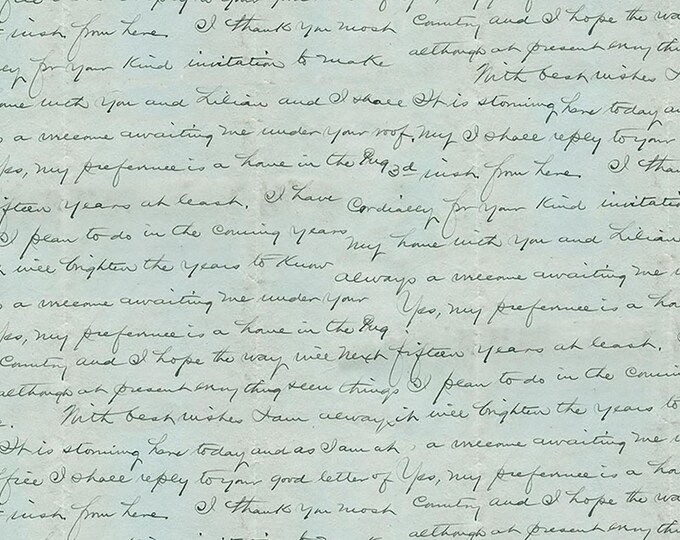 I thank you most Country and I hope the wa
inst. from here although at present
ly for your Kind invitation to make
With best wishes I a
ome with you and Lilian and I shall It is storming here today an
a welcome awaiting me under your roof. I shall reply to your
es, my preference is a home in the 3d inst. from here. I than
fifteen years at least. I have Cordially for your Kind invitatio
I plan to do in the coming years my home with you and Lilian
t will brighten the years to know always a welcome awaiting me u
a welcome awaiting me under your Yes, my preference is a ho
es, my preference is a home in the
Country and I hope the way will next fifteen years at least.
although at present things I plan to do in the comin
With best wishes I am always, it will brighten the years to
It is storming here today and as I am at a welcome awaiting me u
ffice I shall reply to your good letter of Yes, my preference is a ho
inst. from here I thank you most Country and I hope the wa
although at present